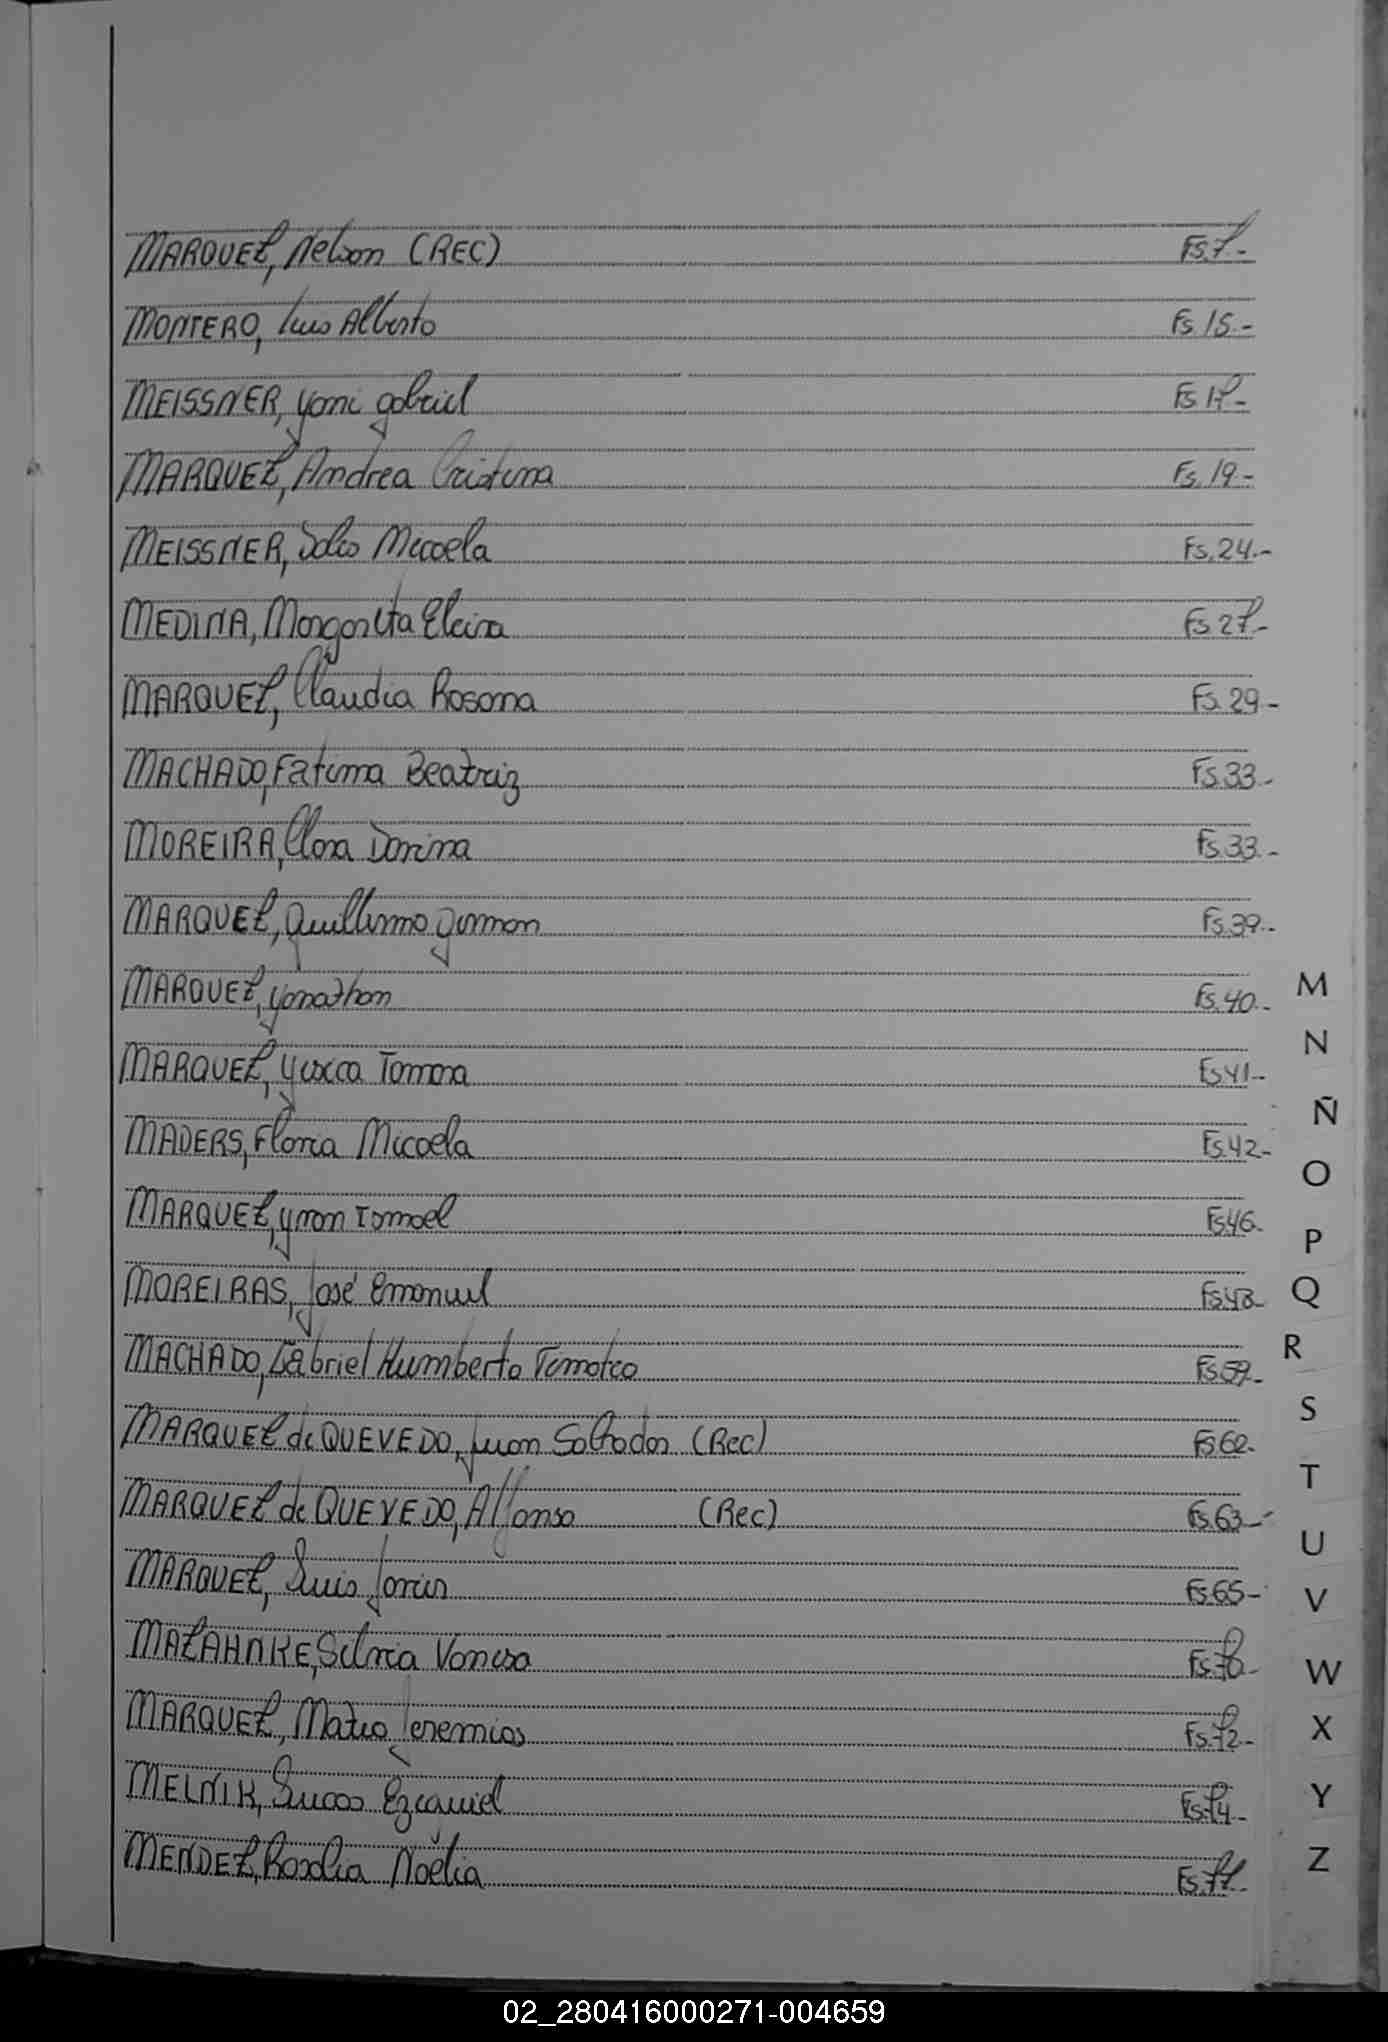 MARQUEZ, Nelson (REC) Fs.7.-
MONTERO, Luis Alberto Fs.15.-
MEISSNER, Yani Gabriel Fs.17-
MARQUEZ, Andrea Cristina Fs.19.-
MEISSNER, Micaela Fs.24.-
MEDINA, Margarita Elcira Fs.27-
MARQUEZ, Claudia Rosana Fs.29-
MACHADO, Fatima Beatriz Fs.33.-
MOREIRA, Clara Dorina Fs.33.-
MARQUEZ, Guillermo German Fs.39.-
MARQUEZ, Yonathan Fs.40.-
MARQUEZ, Tamara Fs.41-
MADERS, Micaela Fs.42-
MARQUEZ, Ismael Fs.46.
MOREIRAS, José Emanuel
MACHADO, Gabriel Humberto Timoteo Fs.59.-
MARQUEZ de QUEVEDO, Juan Salvador (Rec) Fs.62.
MARQUEZ de QUEVEDO, Alfonso (Rec) Fs.63-
MARQUEZ, Luis Javier Fs.65-
MAZAHNKE, Silvia Vanesa Fs.70-
MARQUEZ, Mateo Jeremias Fs.72-
MELNIK, Lucas Ezequiel Fs.74-
MENDEZ, Rosalia Noelia Fs.77-
M
N
Ñ
O
P
Q
R
S
T
U
V
W
X
Y
Z
02_280416000271-004659